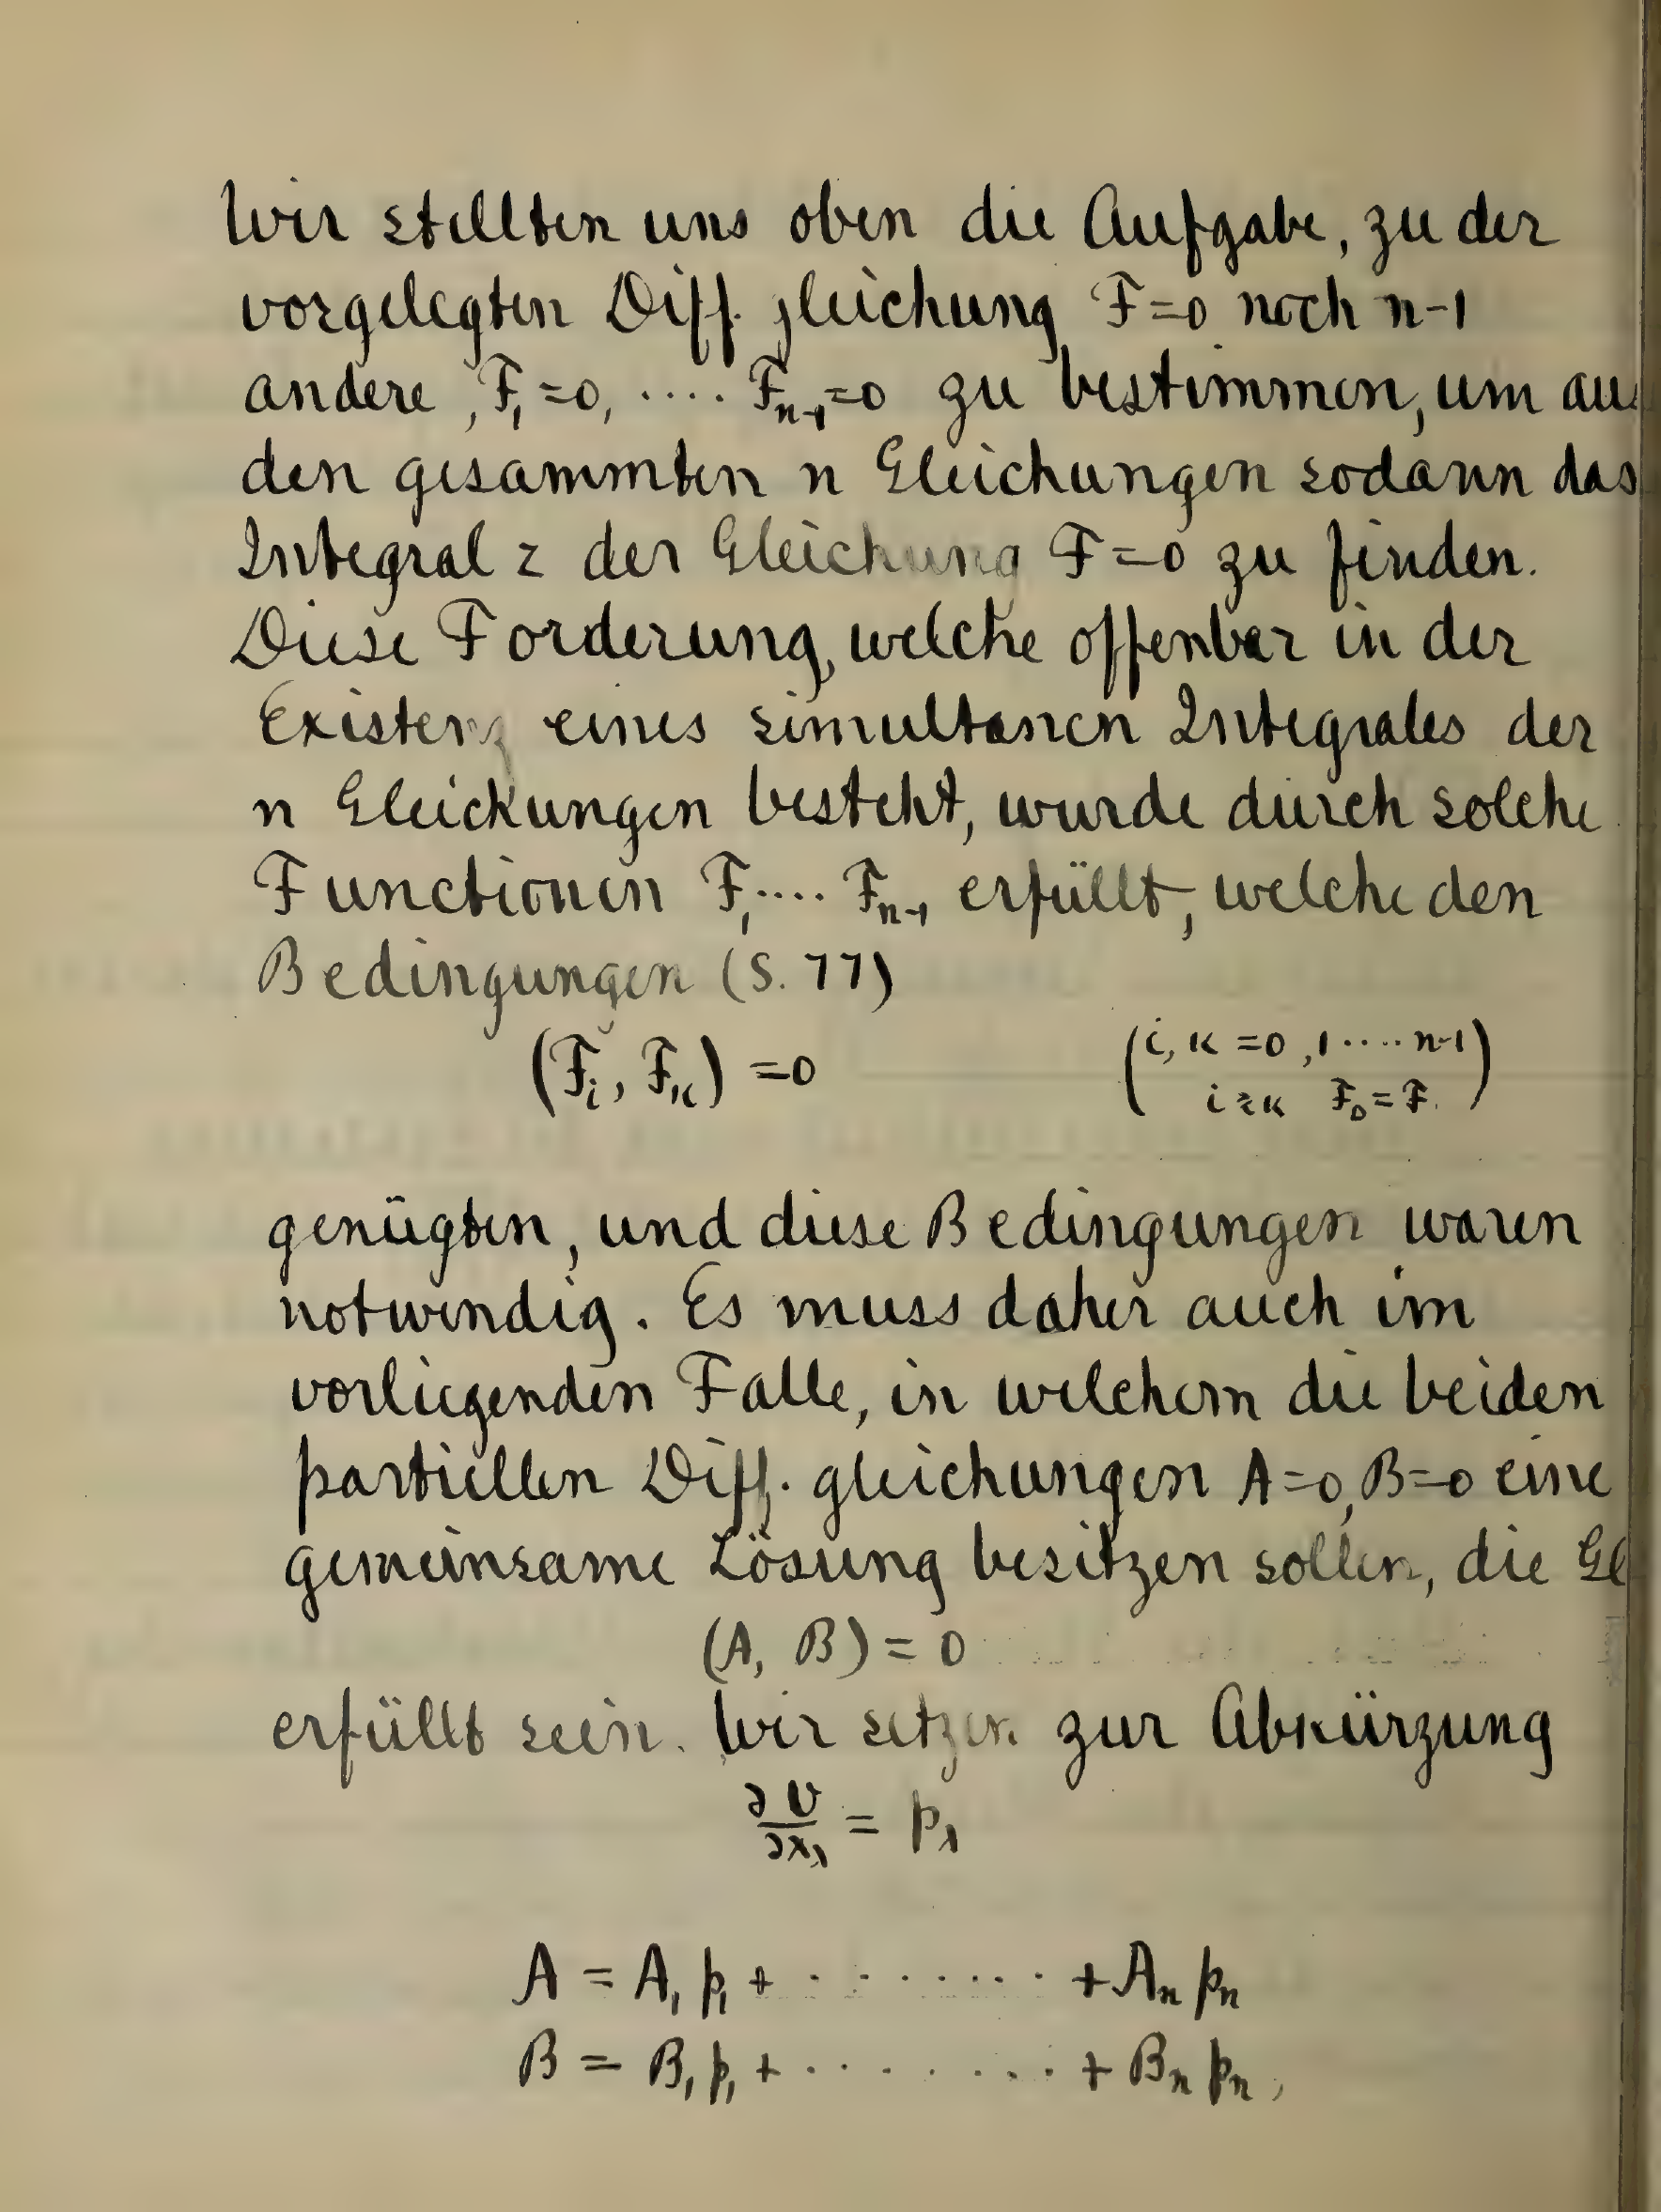 Wir stellten uns oben die Aufgabe, zu der
vorgelegten Diff. gleichung F=0 noch n-1
andere, F₁=0, .... Fₙ₋₁=0 zu bestimmen, um au
den gesammten n Gleichungen sodann das
Integral z der Gleichung F=0 zu finden.
Diese Forderung, welche offenbar in der
Existenz eines simultanen Integrales der
n Gleichungen besteht, wurde durch solche
Functionen F₁.... Fₙ₋₁ erfüllt, welche den
Bedingungen (S. 77)
(Fᵢ, Fₖ) =0 (i, k =0, 1 .... n-1)
i ≷ k F₀=F.
genügten, und diese Bedingungen waren
notwendig. Es muss daher auch im
vorliegenden Falle, in welchem die beiden
partiellen Diff. gleichungen A=0, B=0 eine
gemeinsame Lösung besitzen sollen, die Gl
(A, B) = 0
erfüllt sein. Wir setzen zur Abkürzung
∂U/∂x_λ = p_λ
A = A₁ p₁ + ........ + Aₙ pₙ
B = B₁ p₁ + ........ + Bₙ pₙ,